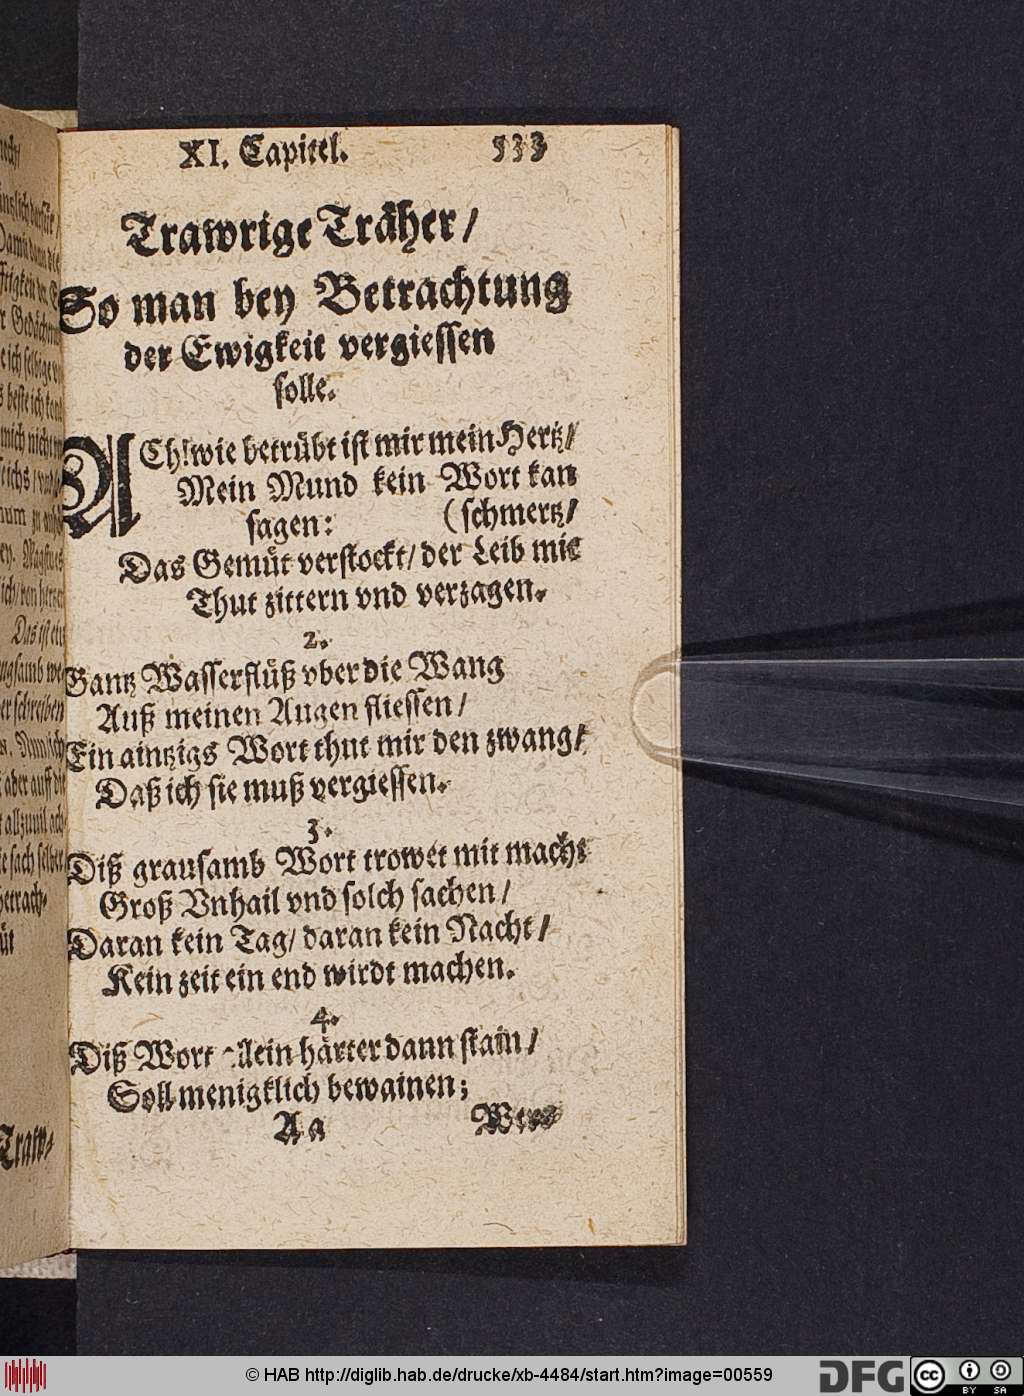 XI. Capitel. 533
Trawrige Träher/
So man bey Betrachtung
der Ewigkeit vergiessen
solle.
ACh! wie betrübt ist mir mein Hertz/
Mein Mund kein Wort kan
sagen: (schmertz/
Das Gemüt verstockt/ der Leib mit
Thut zittern vnd verzagen.
2.
Gantz Wasserflüß vber die Wang
Auß meinen Augen fliessen/
Ein aintzigs Wort thut mir den zwang/
Daß ich sie muß vergiessen.
3.
Diß grausamb Wort trowet mit macht
Groß Vnhail vnd solch sachen/
Daran kein Tag/ daran kein Nacht/
Kein zeit ein end wirdt machen.
4.
Diß Wort allein härter dann stain/
Soll menigklich bewainen;
Aa
Traw-
© HAB http://diglib.hab.de/drucke/xb-4484/start.htm?image=00559
DFG
cc
BY SA